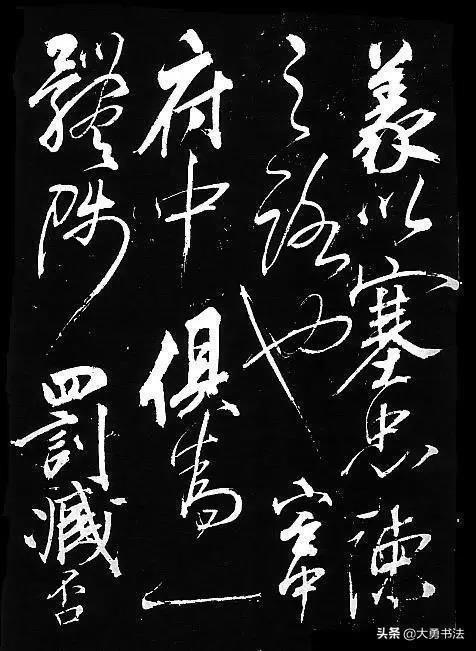 義以塞忠諫
之路也宮中
府中俱為一
體陟罰臧否
头条 @大勇书法